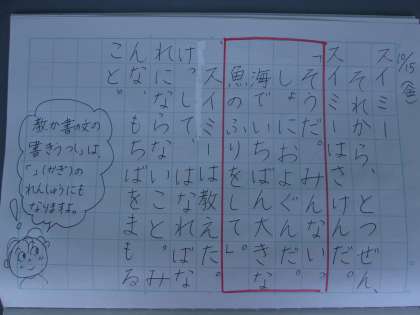 10/15 金
スイミー
それから、とつぜん、
スイミーはさけんだ。
「そうだ。みんないっ
しょにおよぐんだ。
海でいちばん大きな
魚のふりをして」。
スイミーは教えた。
けっして、はなればな
れにならないこと。み
んな、もちばをまもる
こと。
教か書の文の
「書きうつし」は、
「」(かぎ)の
れんしゅうにも
なりますよ。